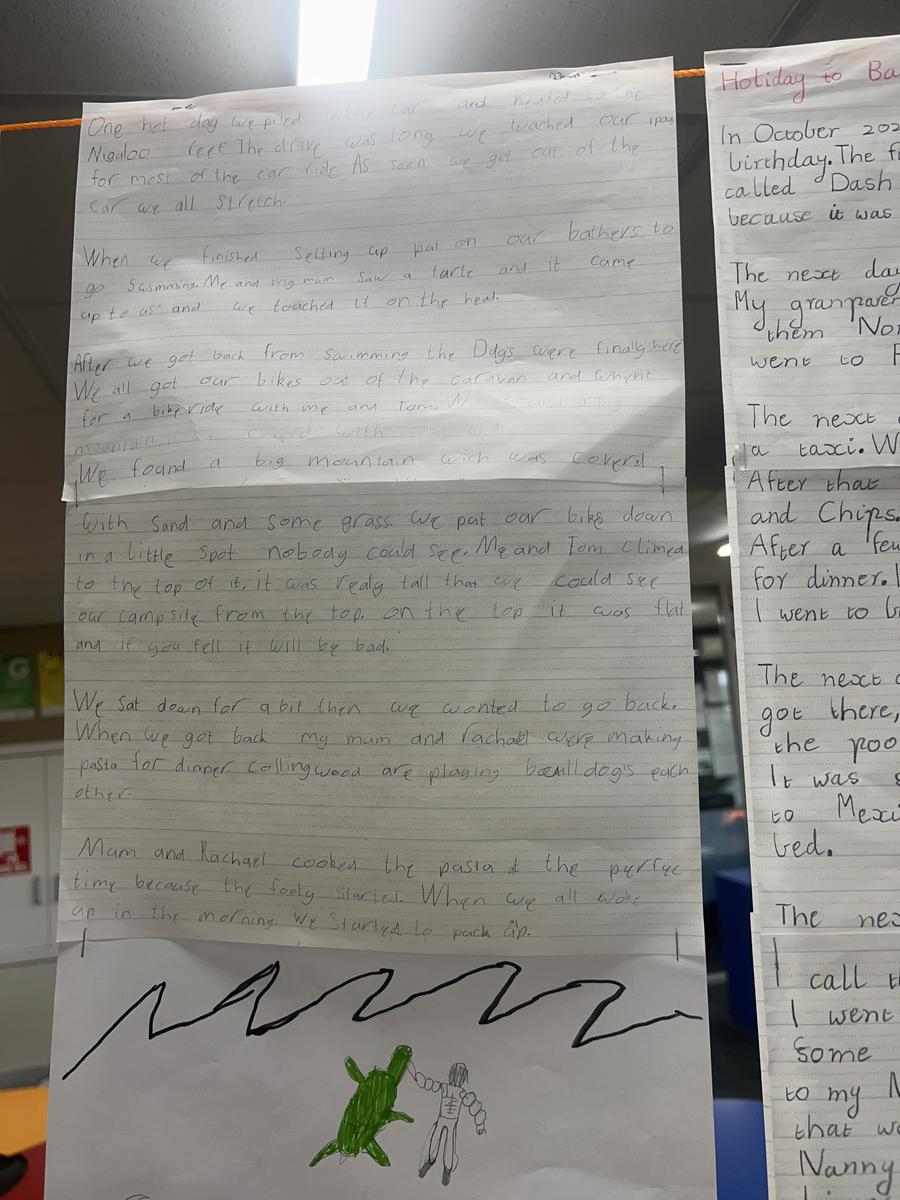 One hot day we piled in the car and headed to the
Nigaloo reef The drive was long we wached our ipad
for most of the car ride As soon we got out of the
car we all stretch.
When we finished setting up pat on our bathers to
go swimming. Me and my mam saw a tartle and it came
up to as and we toached it on the head.
After we got back from swimming the Ddgs were finally here
We all got our bikes oat of the caravan and whent
for a bike ride with me and Tom. W
mountain
We found a big mountain wich was coverd
with sand and some grass. we pat oar biks down
in a little spot nobody could see. Me and Tom climed
to the top of it. it was realy tall that we could see
our campsite from the top. on the top it was flat
and if you fell it will be bad.
We sat down for a bit then we wonted to go back.
When we got back my mum and rachael were making
pasta for dinner. collingwood are playing bulldog's each
other.
Mam and Rachael cooked the pasta at the perfec
time because the footy started. When we all woke
up in the morning. We started to pack up.
Holiday to Ba
In October 202
birthday. The f
called Dash
because it was
The next day
My granparen
them Nor
went to F
The next
a taxci. W
After that
and Chips.
After a few
for dinner. I
I went to b
The next
got there,
the poo
It was s
to Mexi
bed.
The nex
I call th
I went
Some
to my N
that wa
Nanny
G